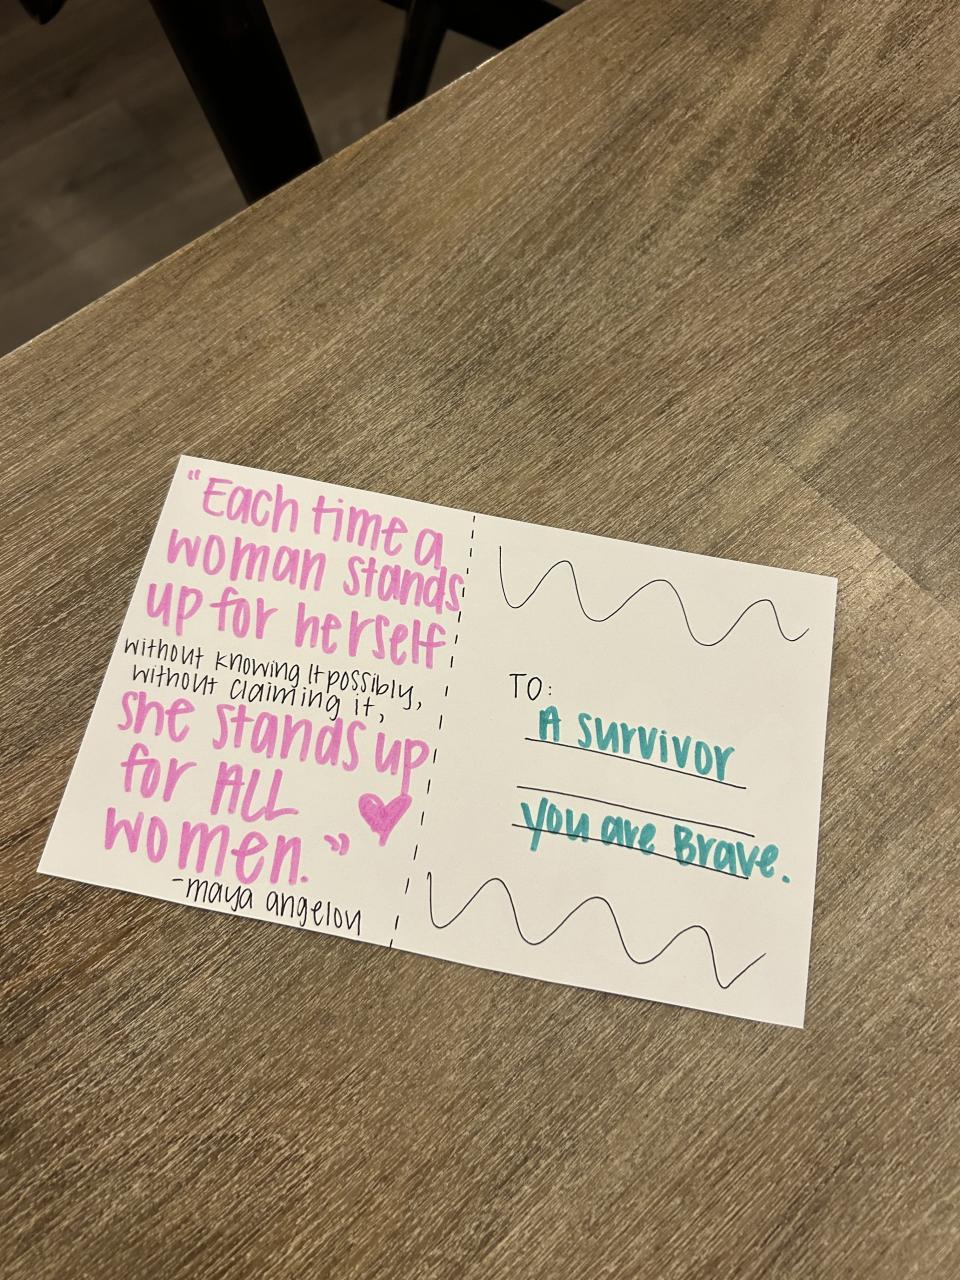 "Each time a
woman stands
up for herself
without knowing It possibly,
without claiming it,
she stands up
for ALL
women."
-maya angelou
TO:
A survivor
you are Brave.